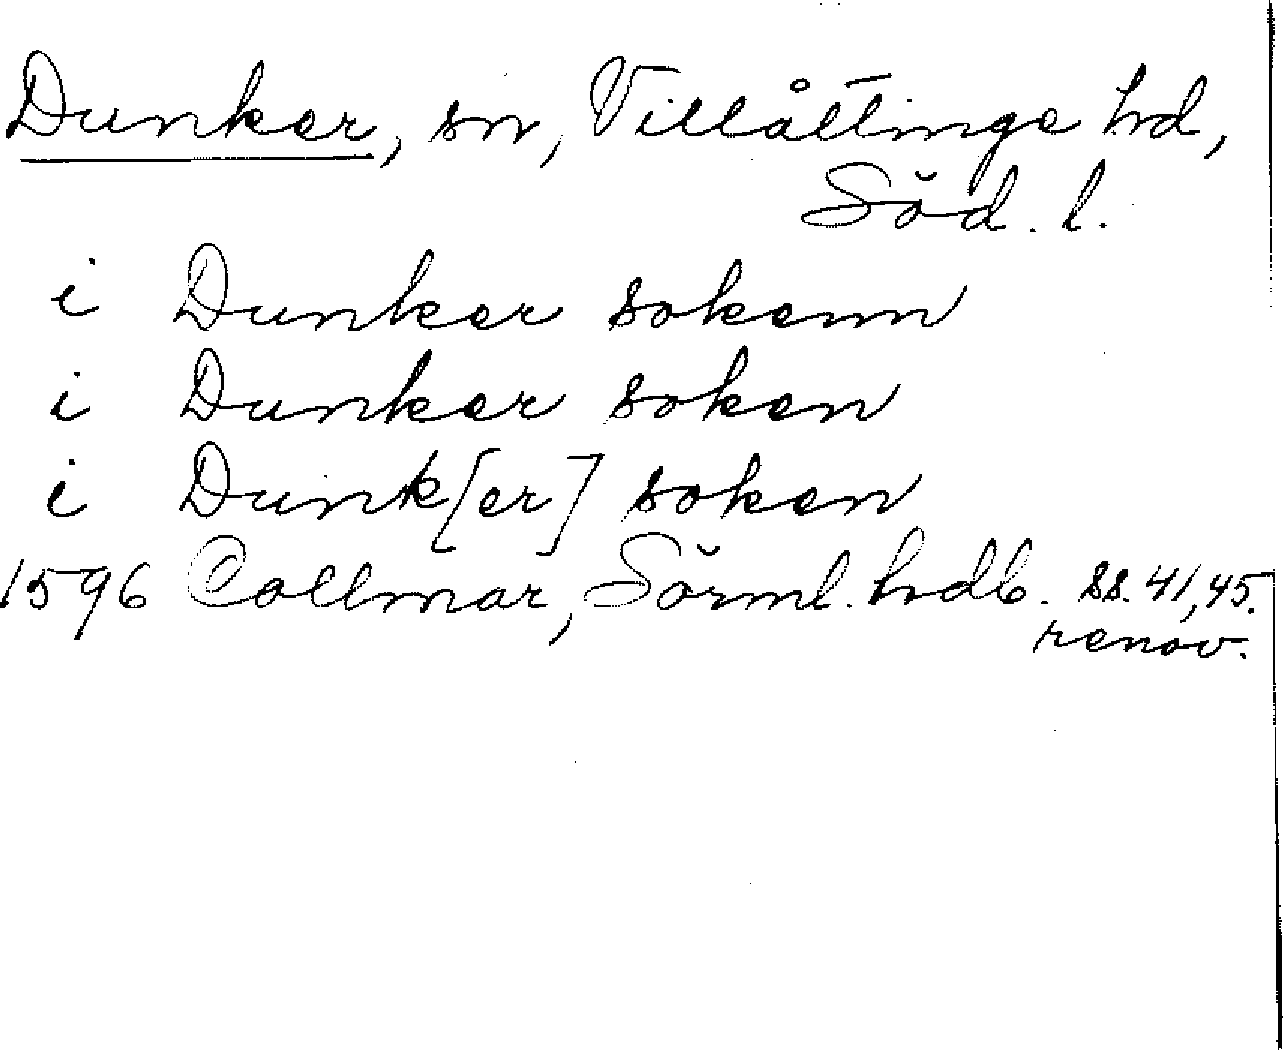 Dunker, sn, Villåttinge hd,
Söd. l.
i Dunker sokenn
i Dunker soken
i Dunk[er] soken
1596 Collmar, Sörml. hrdb. ss. 41, 45.
renov.